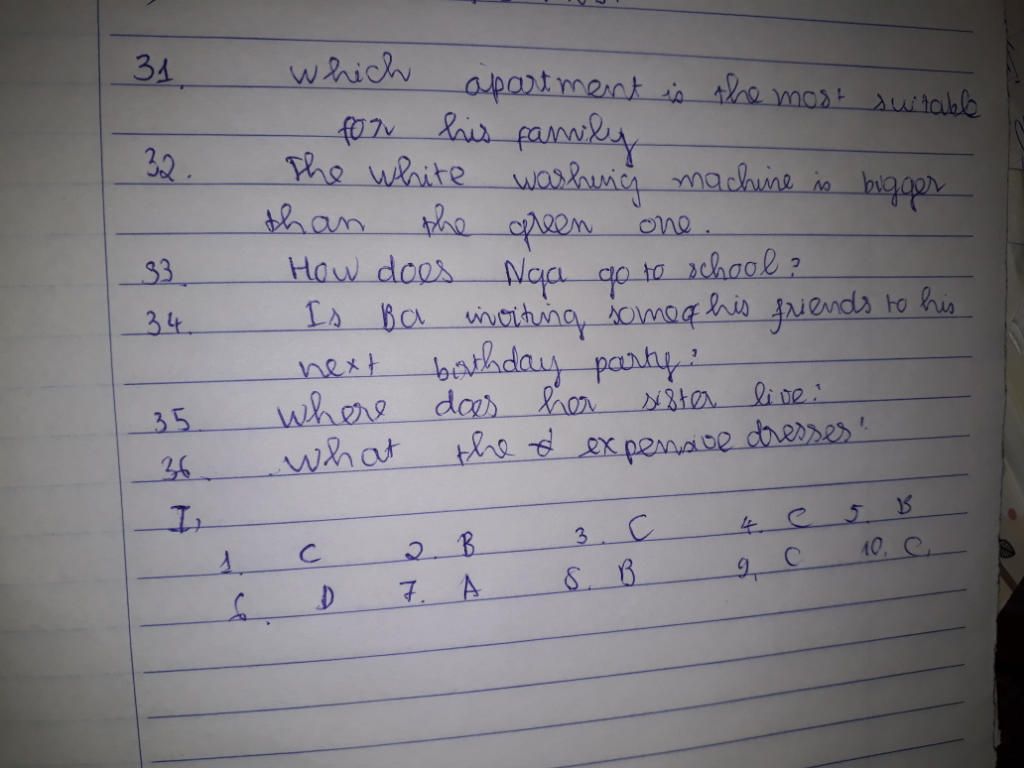 31. Which apartment is the most suitable
for his family
32. The white washing machine is bigger
than the green one.
33. How does Nga go to school?
34. Is Ba inviting some of his friends to his
next birthday party?
35. Where does her sister live?
36. What the expensive dresses!
I,
1. C 2. B 3. C 4. C 5. B
6. D 7. A 8. B 9, C 10. C,